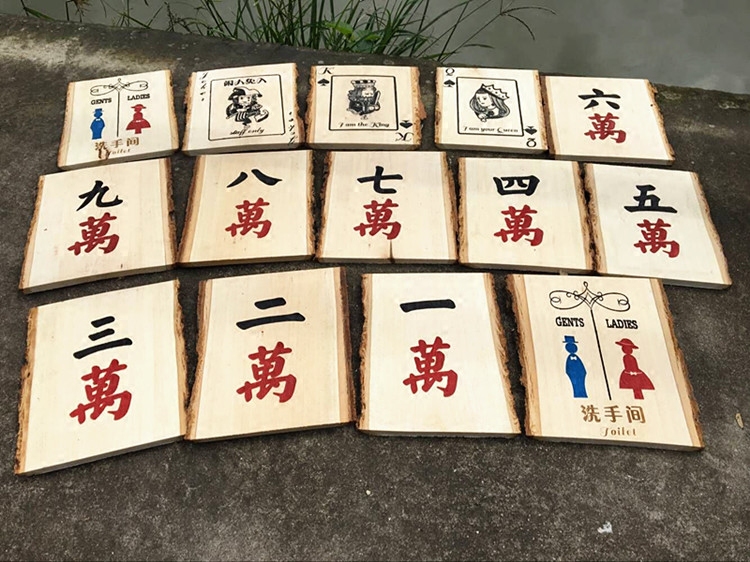 GENTS LADIES
洗手间
Toilet
Joker
闲人免入
Staff only
Joker
K
I am the King
K
Q
I am your Queen
Q
六
萬
九
萬
八
萬
七
萬
四
萬
五
萬
三
萬
二
萬
一
萬
GENTS LADIES
洗手间
Toilet